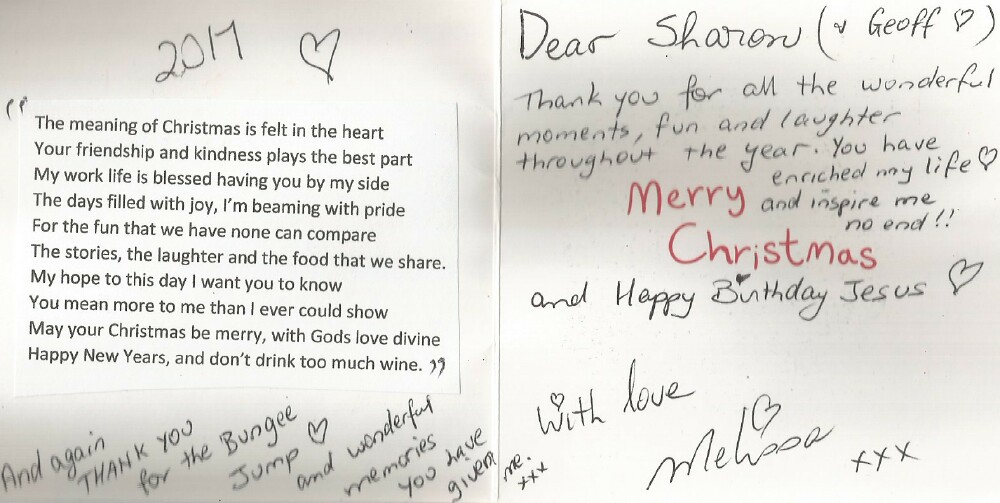 2017 ♡
“
The meaning of Christmas is felt in the heart
Your friendship and kindness plays the best part
My work life is blessed having you by my side
The days filled with joy, I'm beaming with pride
For the fun that we have none can compare
The stories, the laughter and the food that we share.
My hope to this day I want you to know
You mean more to me than I ever could show
May your Christmas be merry, with Gods love divine
Happy New Years, and don't drink too much wine. ”
And again
THANK YOU
for the Bungee
Jump ♡
and wonderful
memories
you have
given me.
xxx
Dear Sharon (& Geoff ♡)
Thank you for all the wonderful
moments, fun and laughter
throughout the year. You have
enriched my life ♡
and inspire me
no end!!
Merry
Christmas
and Happy Birthday Jesus ♡
With love
Melissa
xxx